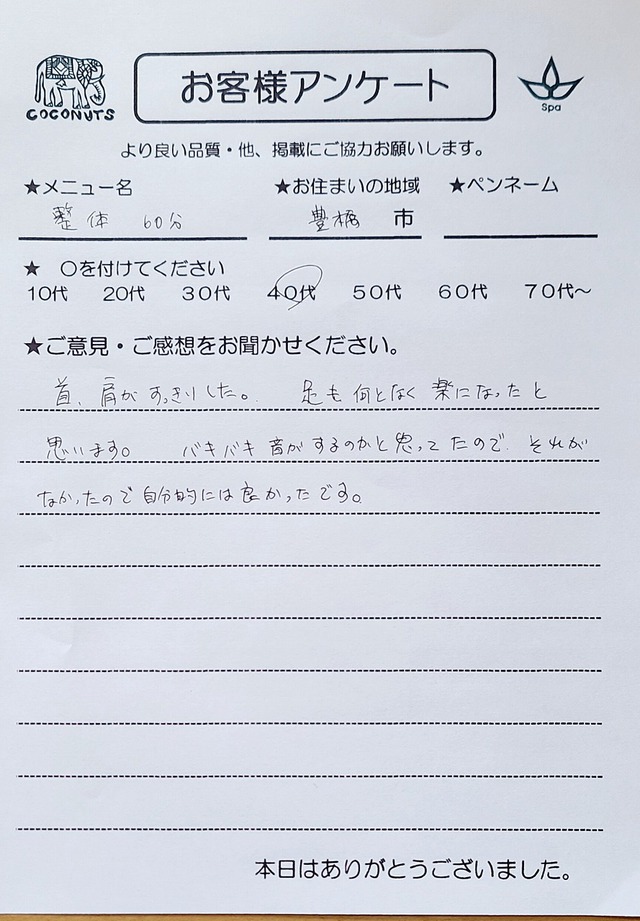 お客様アンケート
COCONUTS
Spa
より良い品質・他、掲載にご協力お願いします。
★メニュー名 ★お住まいの地域 ★ペンネーム
整体 60分 豊橋 市
★ 〇を付けてください
10代 20代 30代 40代 50代 60代 70代〜
★ご意見・ご感想をお聞かせください。
首、肩がすっきりした。 足も何となく楽になったと
思います。 バキバキ音がするのかと思ってたので、それが
なかったので自分的には良かったです。
本日はありがとうございました。